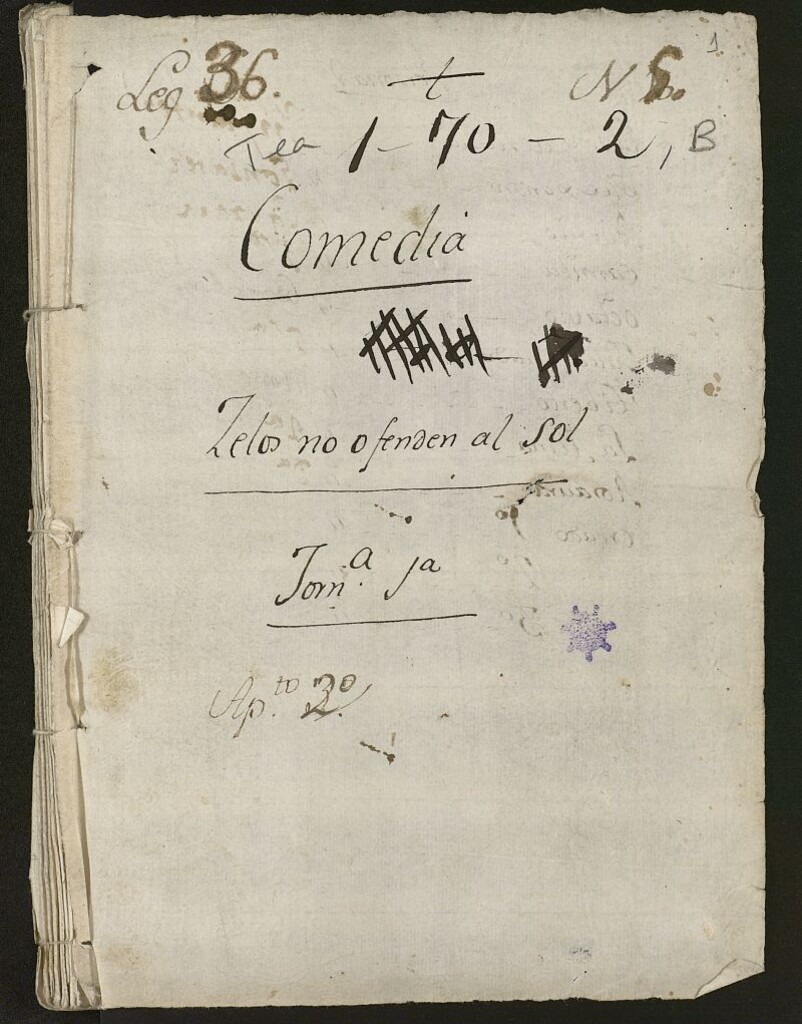 1
Leg 36. N
Tea 1-70-2, B
Comedia
Zelos no ofenden al sol
Jorn.ª 1ª
Ap.to 2º